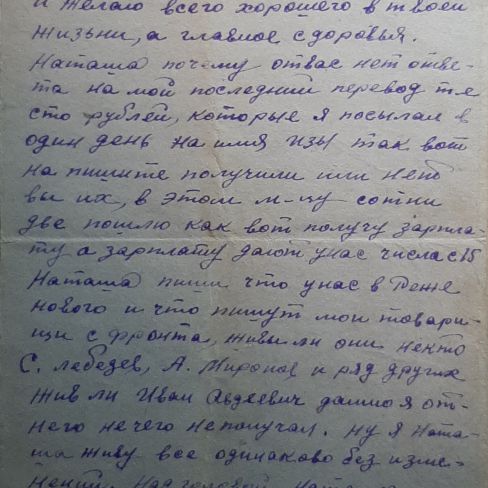 и желаю всего хорошего в твоей
жизьни, а главное сдоровья.
Наташа почему от вас нет отве-
та на мой последний перевод т.е
сто рублей, которые я посылал в
один день на имя Изы так вот
напишите получили или нет
вы их, в этом м-цу сотни
две пошлю как вот получу зарпла-
ту а зарплату дают унас числа с 15
Наташа пиши что у нас в Деже
нового и что пишут мои товари-
щи с фронта, живы ли они некто
С. Лебедев, А. Миронов и ряд других
жив ли Иван Авдеевич давно я от-
него нечего неполучал. ну я Ната-
ша живу все одинаково без изме-
нений. Над головой